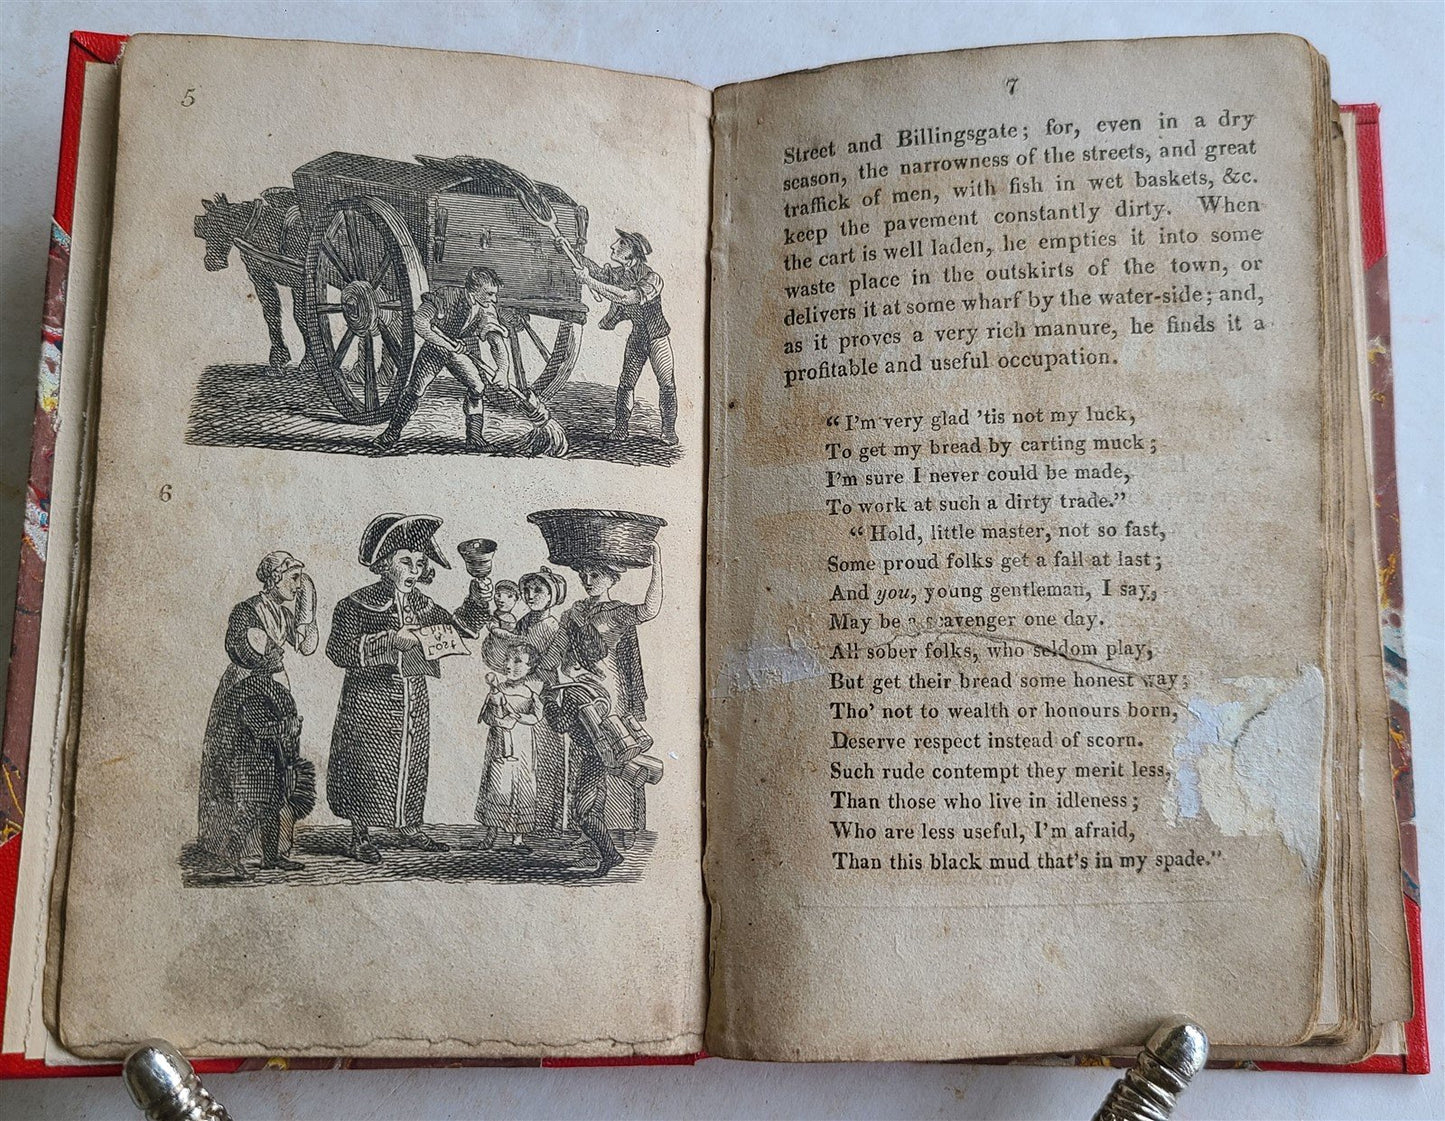 5
6
LOST
7
Street and Billingsgate; for, even in a dry
season, the narrowness of the streets, and great
traffick of men, with fish in wet baskets, &c.
keep the pavement constantly dirty. When
the cart is well laden, he empties it into some
waste place in the outskirts of the town, or
delivers it at some wharf by the water-side; and,
as it proves a very rich manure, he finds it a
profitable and useful occupation.
“I'm very glad 'tis not my luck,
To get my bread by carting muck;
I'm sure I never could be made,
To work at such a dirty trade.”
“Hold, little master, not so fast,
Some proud folks get a fall at last;
And you, young gentleman, I say,
May be a scavenger one day.
All sober folks, who seldom play,
But get their bread some honest way;
Tho' not to wealth or honours born,
Deserve respect instead of scorn.
Such rude contempt they merit less,
Than those who live in idleness;
Who are less useful, I'm afraid,
Than this black mud that's in my spade.”